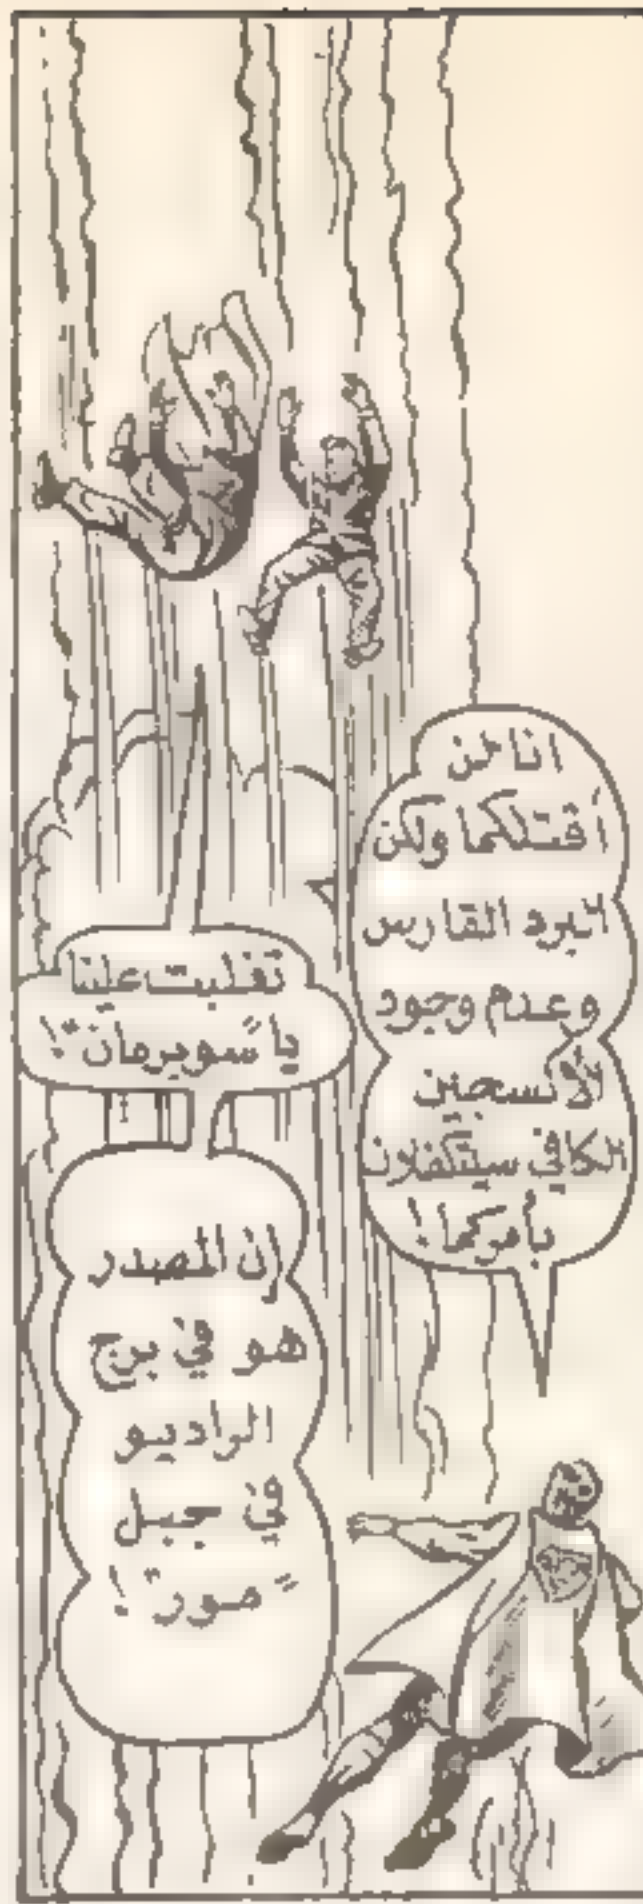 انا لن
أقتلكما ولكن
البرد القارس
وعدم وجود
الأكسجين
الكافي سيتكفلان
بأمركما!
تغلبت علينا
يا "سوبرمان"!
إن المصدر
هو في برج
الراديو
في جبل
"مور"!